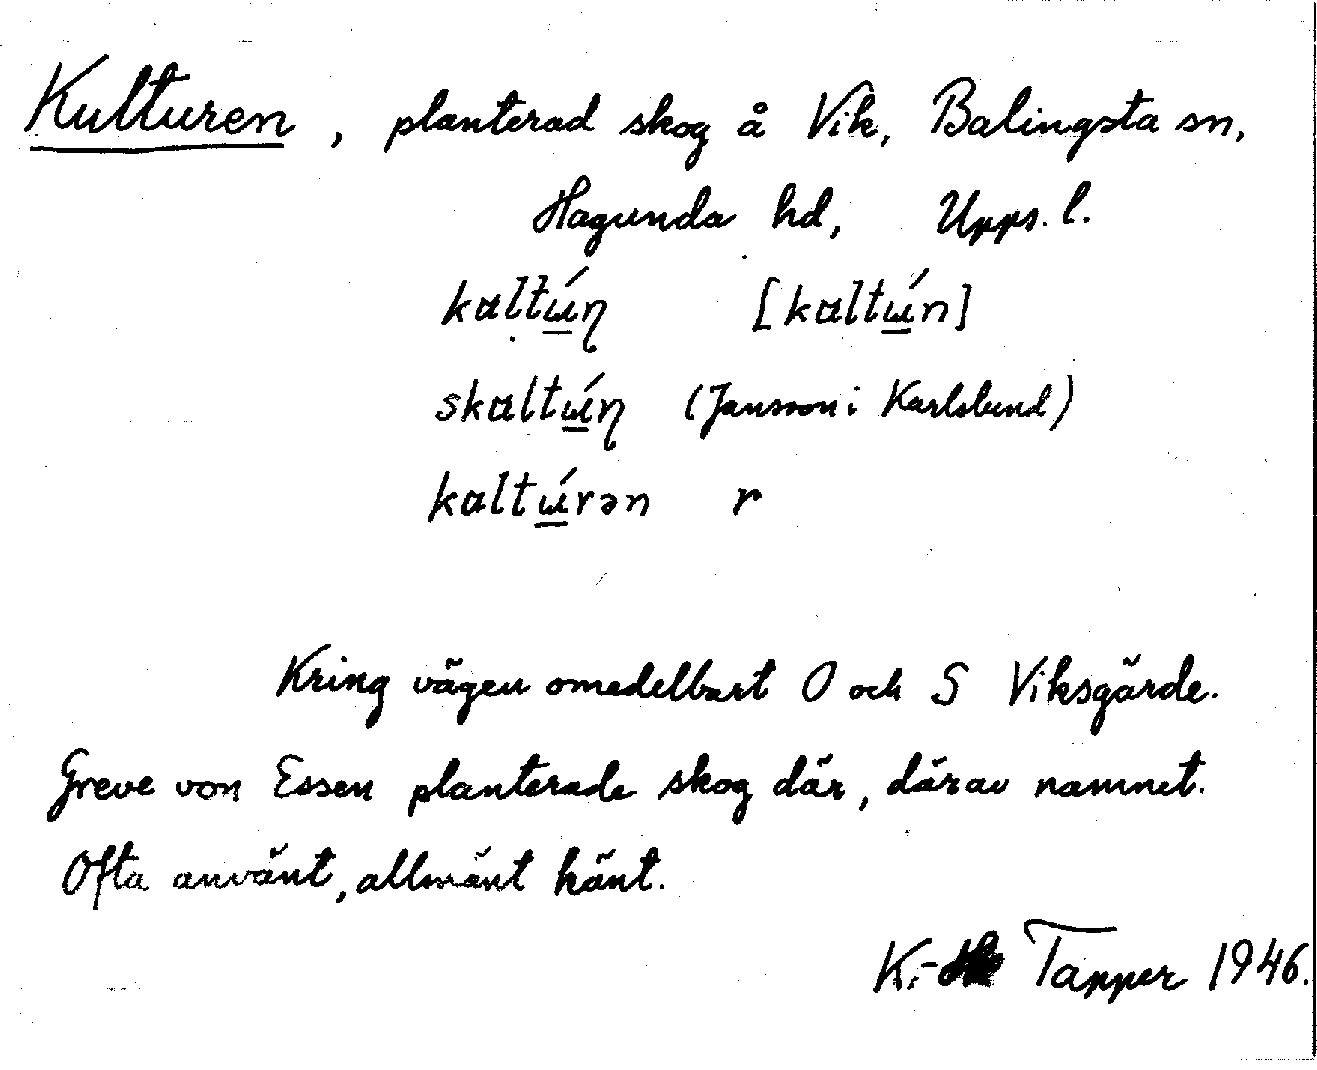 Kulturen, planterad skog å Vik, Balingsta sn,
Hagunda hd, Upps. l.
kɑltɯ̲́ɳ [kɑltɯ̲́n]
skɑltɯ̲́ɳ (Jansson i Karlslund)
kɑltɯ̲́rən r
Kring vägen omedelbart O och S Viksgärde.
Greve von Essen planterade skog där, därav namnet.
Ofta använt, allmänt känt.
K.- Tapper 1946.